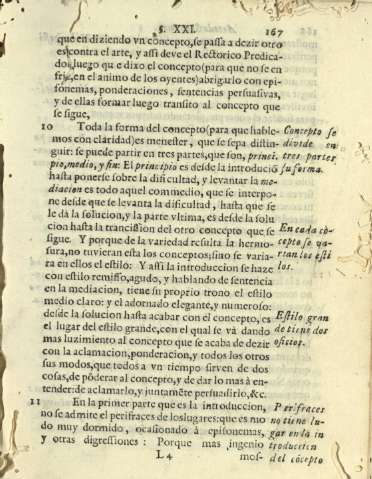 §. XXI. 167
que en diziendo vn concepto, se passa a dezir otro
es contra el arte, y assi deve el Rectorico Predica-
dor, luego qu e dixo el concepto (para que no se en
frie, en el animo de los oyentes) abrigarlo con epi-
fonemas, ponderaciones, sentencias persuasivas,
y de ellas formar luego transito al concepto que
se sigue,
10 Toda la forma del concepto (para que hable-
mos con claridad) es menester, que se sepa distin-
guir: se puede partir en tres partes, que son, princi.
pio, medio, y fin: El principio es desde la introducio
hasta ponerse sobre la dificultad, y levantar la me-
diacion es todo aquel commedio, que se interpo-
ne desde que se levanta la dificultad, hasta que se
le dà la solucion, y la parte vltima, es desde la solu
cion hasta la trancission del otro concepto que se
sigue. Y porque de la variedad resulta la hermo-
sura, no tuvieran esta los conceptos; sino se varia-
ra en ellos el estilo: Y assi la introduccion se haze
con estilo remisso, agudo, y hablando de sentencia
en la mediacion, tiene su proprio trono el estilo
medio claro: y el adornado elegante, y numeroso:
desde la solucion hasta acabar con el concepto, es
el lugar del estilo grande, con el qual se và dando
mas luzimiento al concepto que se acaba de dezir
con la aclamacion, ponderacion, y todos los otros
sus modos, que todos a vn tiempo sirven de dos
cosas, de põderar al concepto, y de dar lo mas à en-
tender: de aclamarlo, y juntamẽte persuadirlo, &c.
11 En la primera parte que es la introduccion,
no se admite el perifraces de los lugares: que es mo
do muy dormido, ocasionado à epifonemas,
y otras digressiones: Porque mas ingenio
L4 mos-
Concepto se
divide en
tres partes
su forma.
En cada cõ-
cepto se va-
rian los esti
los.
Estilo gran
de tiene dos
oficios.
Perifraces
no tiene lu-
gar en la in
troduccion
del cõcepto